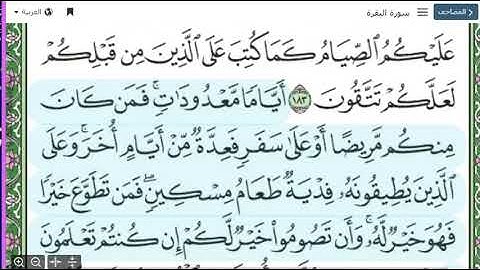 المصاحف سورة البقرة العربية
عَلَيْكُمُ ٱلصِّيَامُ كَمَا كُتِبَ عَلَى ٱلَّذِينَ مِن قَبْلِكُمْ
لَعَلَّكُمْ تَتَّقُونَ ١٨٣ أَيَّامًا مَّعْدُودَٰتٍ ۚ فَمَن كَانَ
مِنكُم مَّرِيضًا أَوْ عَلَىٰ سَفَرٍ فَعِدَّةٌ مِّنْ أَيَّامٍ أُخَرَ ۚ وَعَلَى
ٱلَّذِينَ يُطِيقُونَهُۥ فِدْيَةٌ طَعَامُ مِسْكِينٍ ۖ فَمَن تَطَوَّعَ خَيْرًا
فَهُوَ خَيْرٌ لَّهُۥ ۚ وَأَن تَصُومُوا۟ خَيْرٌ لَّكُمْ ۖ إِن كُنتُمْ تَعْلَمُونَ